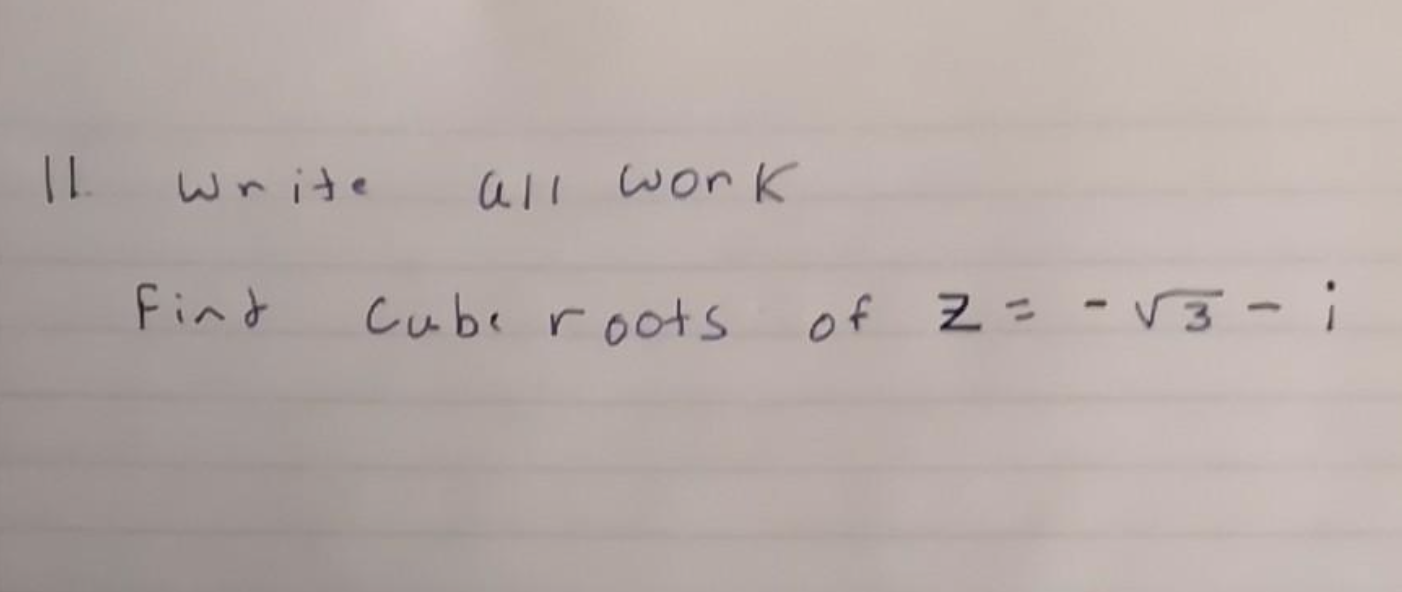 11. Write all work
Find Cube roots of z = -√3 - i